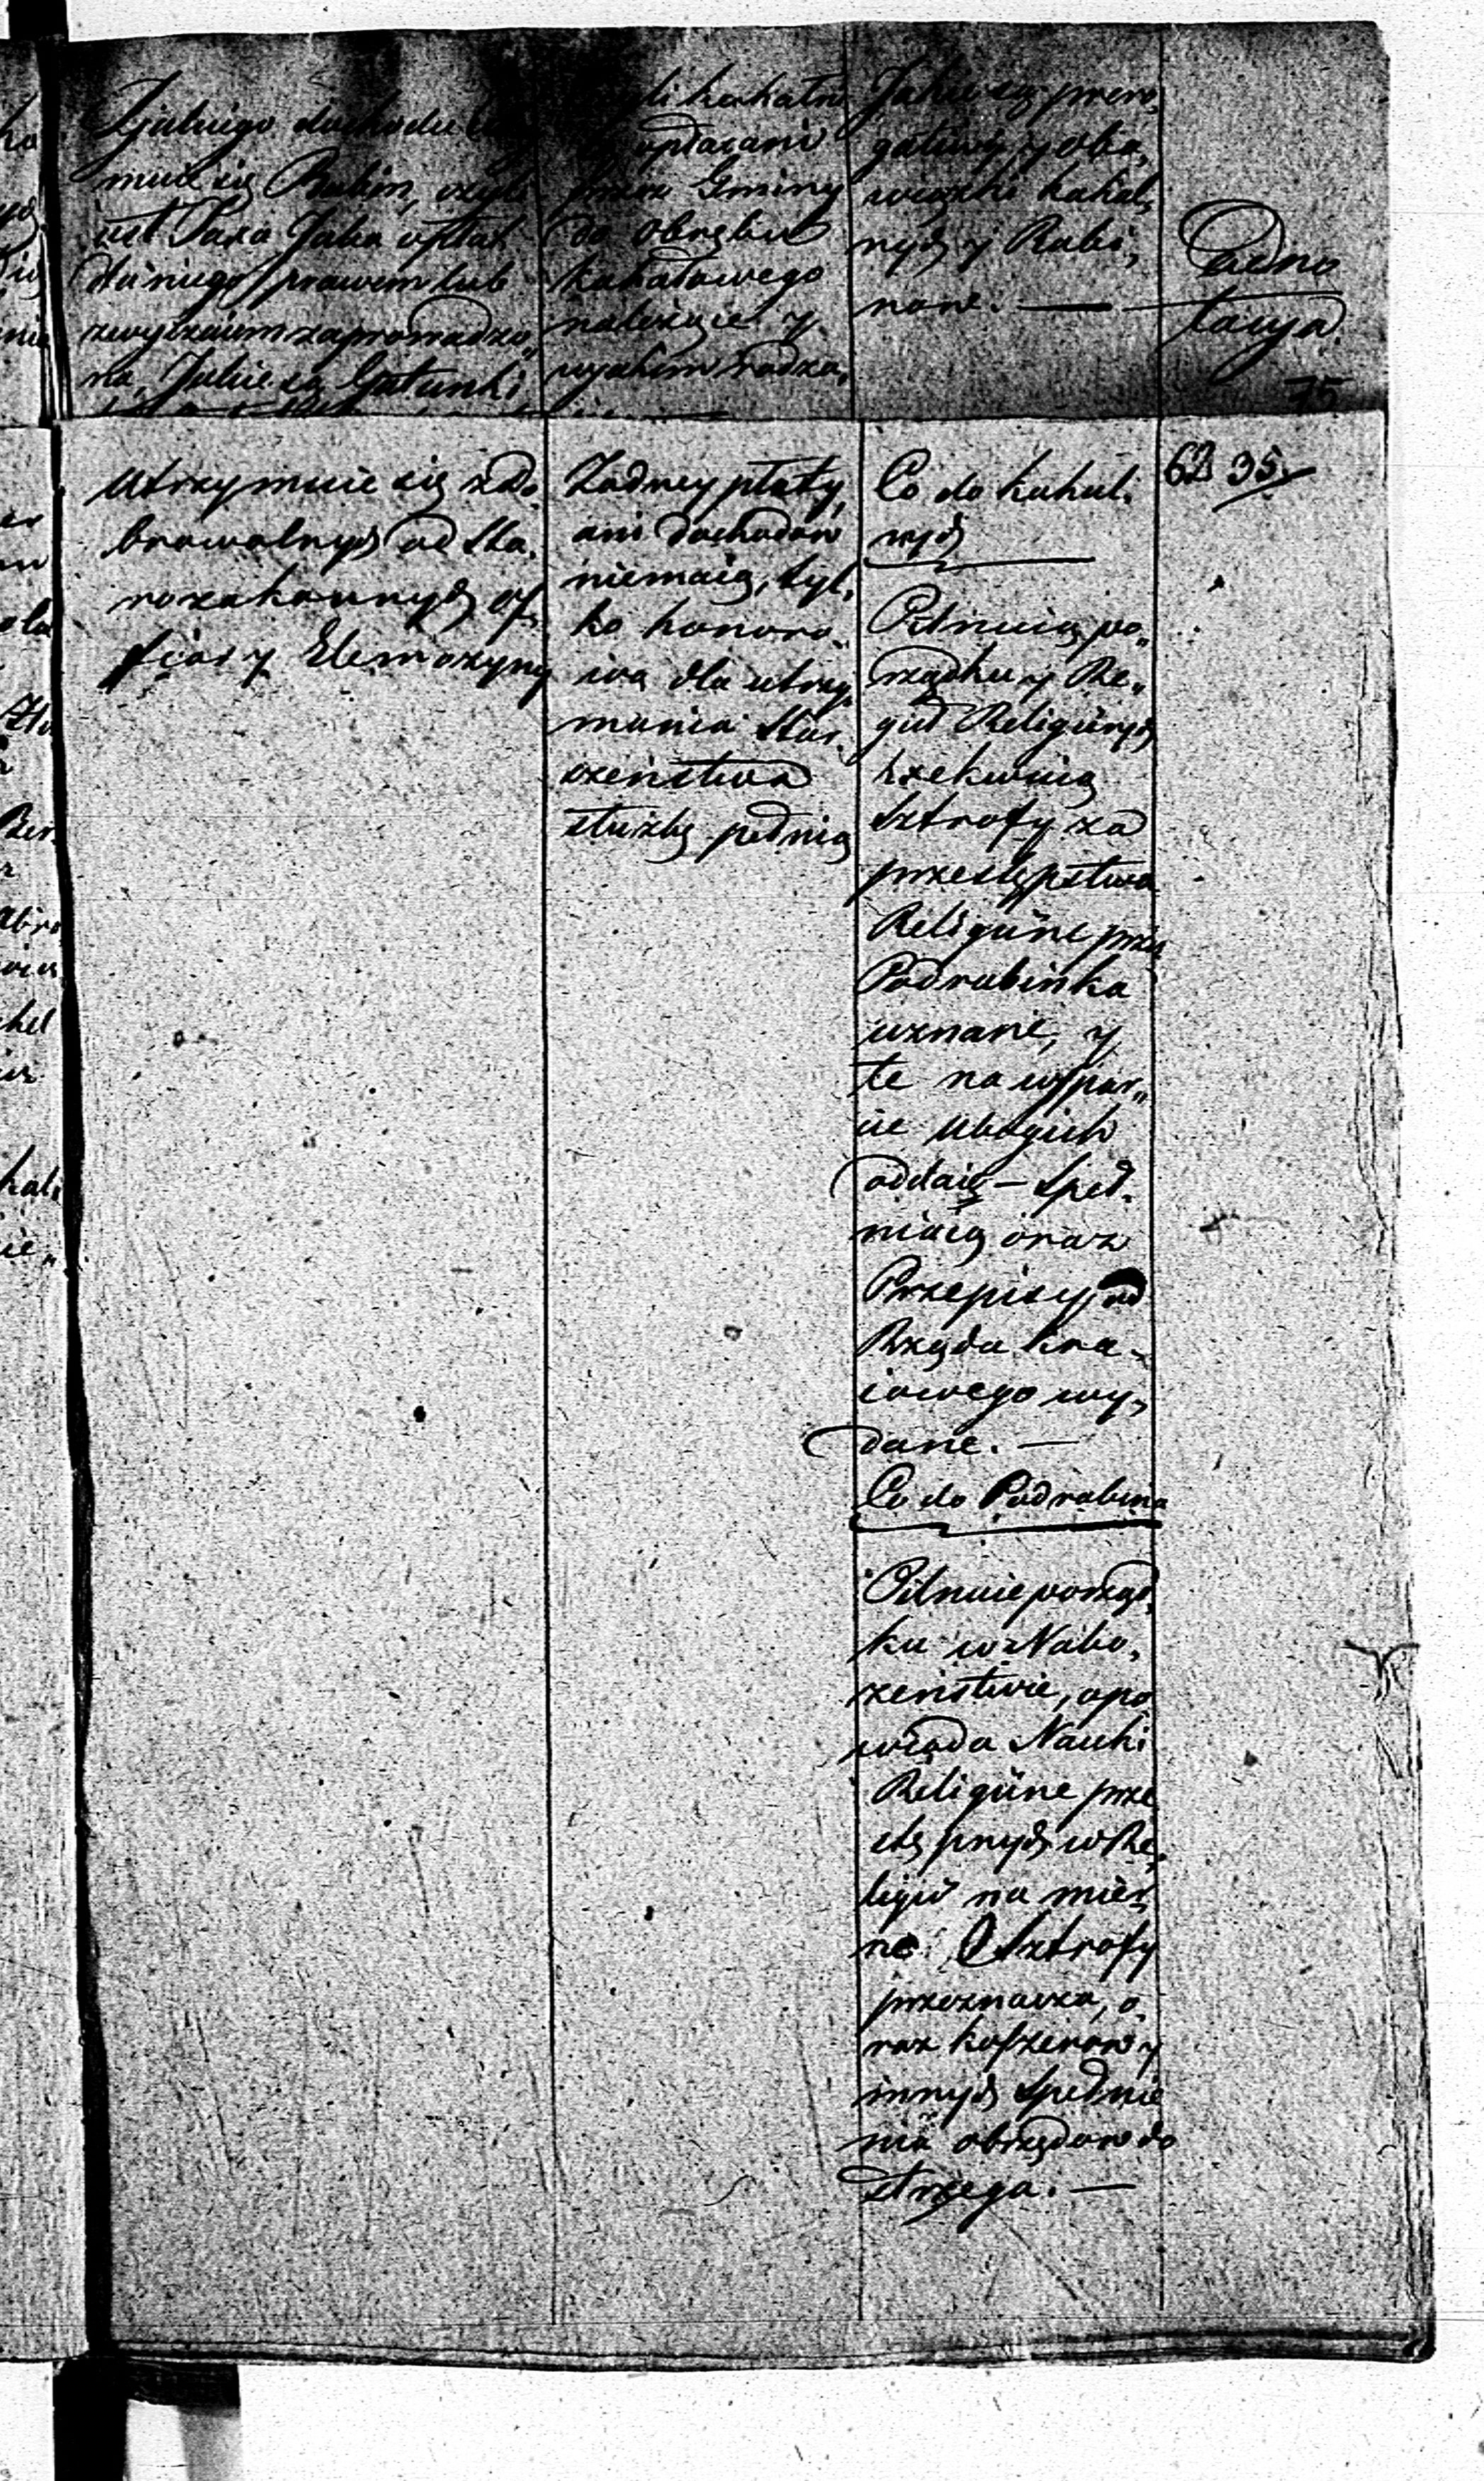 Zjakiego dochodu
muie się Rabin, czyli
iest Taxa Jaka opłat
dla niego prawem lub
zwyczaiem zaprowadzo„
na, Jakie są Gatunki
kahalni
opłacani
przez Gminy
do Obrębu
kahałowego
należące y
wjakim rodza„
Jakie są prero„
gatiwy y obo„
wiązki kahal„
nych y Rabi„
now. —
Adno
tacya.
75
Utrzymuie się z Do„
browolnych od Sta„
rozakonnych of„
fiar y Elemozyny
Żadney płaty,
ani dochodow
niemaią, tyl„
ko honoro„
wą dla utrzy„
mania Star„
szeństwa
służbę pełnią
Co do kahal„
nych
Pilnuią po„
rządku y Re„
guł Religiinych
Exekwuią
Sztrofy za
przestępstwa
Religiine przez
Podrabinka
uznane, y
te na wspar„
cie Ubogich
oddaią — Speł„
niaią oraz
Przepisy od
Rządu Kra„
iowego wy„
dane. —
Co do Podrabina
Pilnuie porząd„
ku w Nabo„
żeństwie, opo
wiada Nauki
Religiine prze
stępnych w Re„
ligii na mier„
ne Sztrofy
przeznacza, o„
raz koszerow y
innych Spełnie
nia obrzędow do
strzega. —
62 35